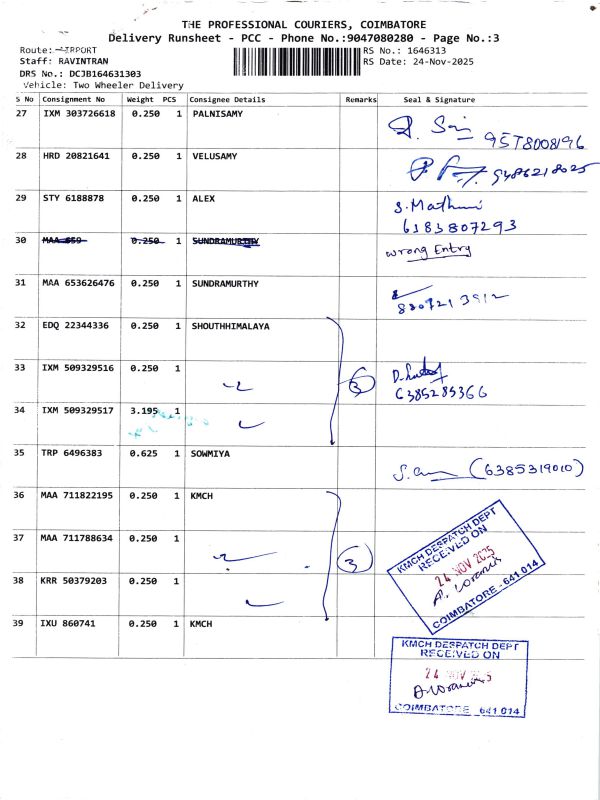 THE PROFESSIONAL COURIERS, COIMBATORE
Delivery Runsheet - PCC - Phone No.:9047080280 - Page No.:3
Route: AIRPORT
RS No.: 1646313
Staff: RAVINTRAN
RS Date: 24-Nov-2025
DRS No.: DCJB164631303
Vehicle: Two Wheeler Delivery
S No Consignment No Weight PCS Consignee Details Remarks Seal & Signature
27 IXM 303726618 0.250 1 PALNISAMY
9578008196
28 HRD 20821641 0.250 1 VELUSAMY
9486218025
29 STY 6188878 0.250 1 ALEX
S. Mathini
6183807293
30 MAA 659 0.250 1 SUNDRAMURTHY
wrong Entry
31 MAA 653626476 0.250 1 SUNDRAMURTHY
8807213912
32 EDQ 22344336 0.250 1 SHOUTHHIMALAYA
33 IXM 509329516 0.250 1
3
6385285366
34 IXM 509329517 3.195 1
35 TRP 6496383 0.625 1 SOWMIYA
(6385319010)
36 MAA 711822195 0.250 1 KMCH
37 MAA 711788634 0.250 1
3
38 KRR 50379203 0.250 1
KMCH DESPATCH DEPT
RECEIVED ON
24 NOV 2025
COIMBATORE - 641 014
39 IXU 860741 0.250 1 KMCH
KMCH DESPATCH DEPT
RECEIVED ON
24
COIMBATORE 641 014